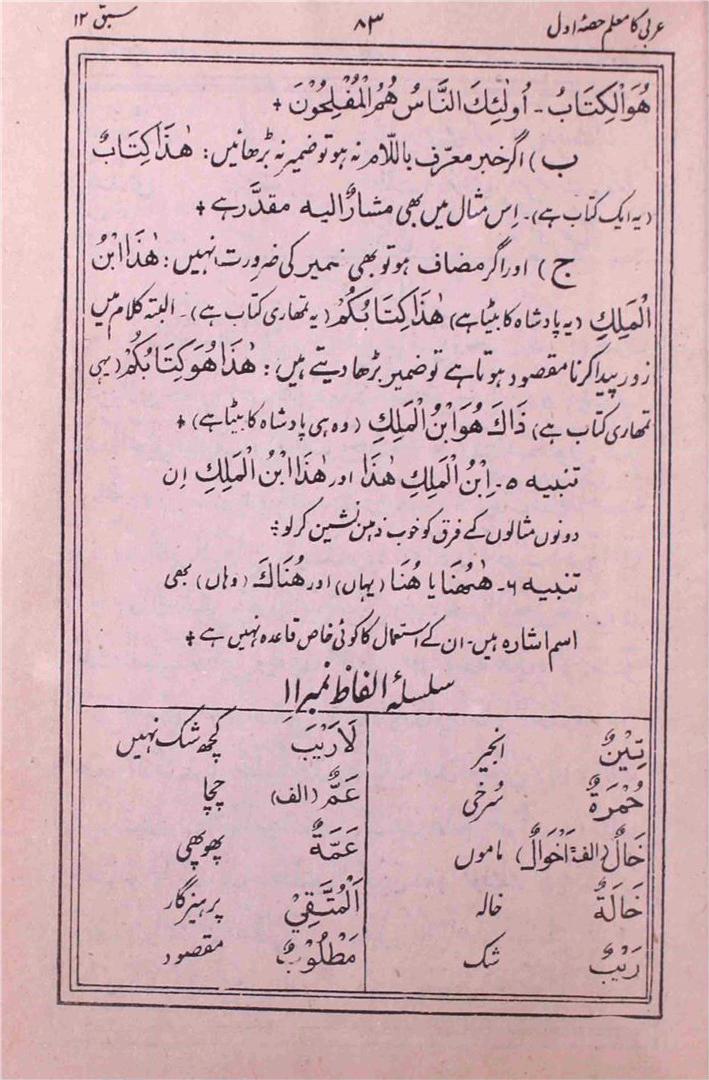 عربی کا معلم حصۂ اول ۸۳ سبق ۱۲
هُوَ الْكِتَابُ۔ اُولٰئِكَ النَّاسُ هُمُ الْمُفْلِحُوْنَ +
ب) اگر خبر معرّف باللّام نہ ہو تو ضمیر نہ بڑھائیں: هٰذَا كِتَابٌ
(یہ ایک کتاب ہے)۔ اِس مثال میں بھی مشارٌ الیہ مقدَّر ہے +
ج) اور اگر مضاف ہو تو بھی ضمیر کی ضرورت نہیں: هٰذَا ابْنُ
الْمَلِكِ (یہ پادشاہ کا بیٹا ہے) هٰذَا كِتَابُكُمْ (یہ تمھاری کتاب ہے)۔ البتہ کلام میں
زور پیدا کرنا مقصود ہوتا ہے تو ضمیر بڑھا دیتے ہیں: هٰذَا هُوَ كِتَابُكُمْ (یہی
تمھاری کتاب ہے) ذَاكَ هُوَ ابْنُ الْمَلِكِ (وہ ہی پادشاہ کا بیٹا ہے) +
تنبیہ ۵۔ اِبْنُ الْمَلِكِ هٰذَا اور هٰذَا ابْنُ الْمَلِكِ اِن
دونوں مثالوں کے فرق کو خوب ذہن نشین کر لو :
تنبیہ ۶۔ هٰهُنَا یا هُنَا (یہاں) اور هُنَاكَ (وہاں) بھی
اسم اشارہ ہیں۔ ان کے استعمال کا کوئی خاص قاعدہ نہیں ہے +
سلسلۂ الفاظ نمبر ۱۱
تِيْنٌ انجیر لَا رَيْبَ کچھ شک نہیں
حُمْرَةٌ سُرخی عَمٌّ (الف) چچا
خَالٌ (الف: اَخْوَالٌ) ماموں عَمَّةٌ پھوپھی
خَالَةٌ خالہ اَلْمُتَّقِيْ پرہیزگار
رَيْبٌ شک مَطْلُوْبٌ مقصود